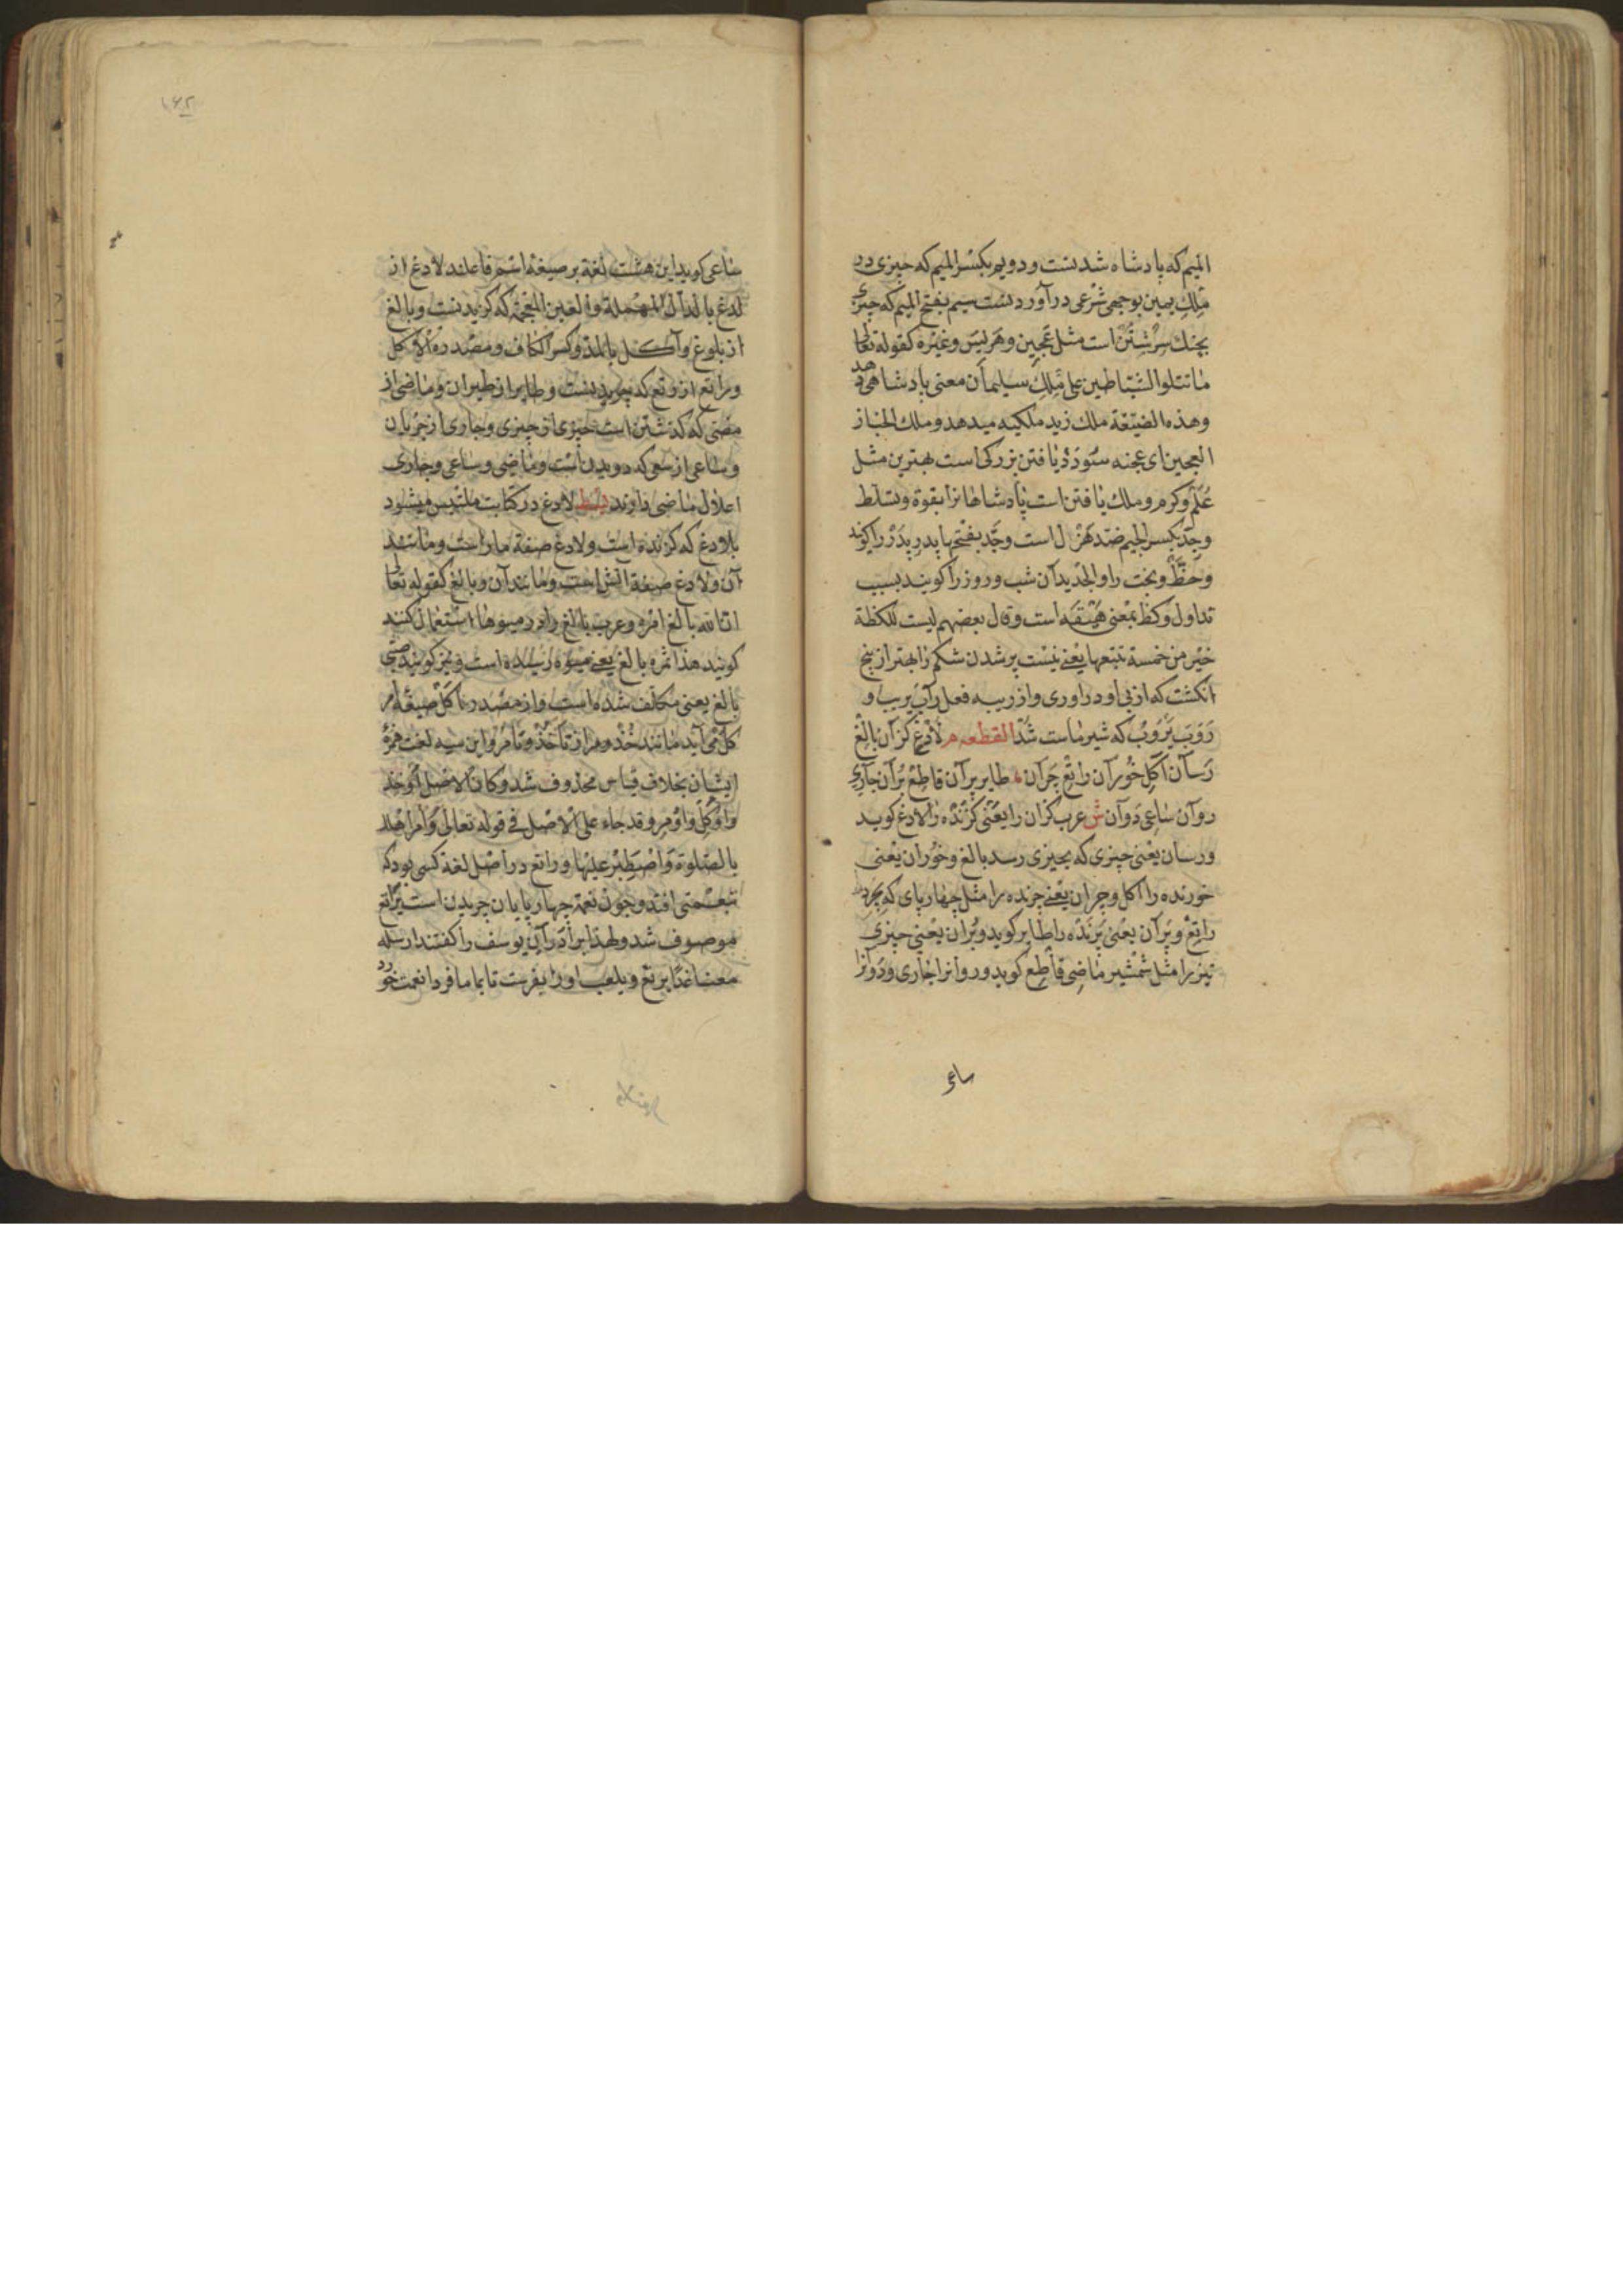 المیم که پادشاه شدنست و دویم بکسر المیم که چیزی در
ملك یمین بوجهی شرعی در آوردنست سیم بفتح المیم که چیزی
بچنك سرشتن است مثل عجین و هریس و غیره کقوله تعالی
ما تتلوا الشیاطین علی ملك سلیمان معنی پادشاهی دهد
وهذه الضیعة ملك زید ملکیه میدهد و ملك الخباز
العجین ای عجنه سودد یافتن بزرکی است بهترین مثل
علم و کرم و ملك یافتن است پادشاهانرا بقوة و تسلط
وجد بکسر الجیم ضد هزل است وجد بفتحها پدر پدر را کویند
وحظ و بخت را والجدیدان شب و روز را کویند بسبب
تداول و کظ بمعنی است وقال بعضهم لیست للکظة
خیر من خمسة تتبعها یعنی نیست پر شدن شکم را بهتر از پنج
انکشت که از پی او در اوری و از ریبه فعل راب یریب و
روب یروب که شیر ماست شد القطعه م لادغ کزان بالغ
رسان آکل خوران راتع چران طایر پران قاطع بران جاری
روان ساعی دوان ش عرب کزان را یعنی کزنده را لادغ کوید
و رسان یعنی چیزی که بچیزی رسد بالغ و خوران یعنی
خورنده را آکل و چران یعنی چرنده را مثل چهارپای که بچرد
راتع و پران یعنی پرنده را طایر کوید و بران یعنی چیزی
تیز را مثل شمشیر ماضی قاطع کوید و روانرا جاری و دوانرا
ساعی
۱۶۲
ساعی کوید این هشت لغة بر صیغة اسم فاعلند لادغ از
لدغ بالدال المهملة والغین المعجمة که کزیدنست و بالغ
از بلوغ و آکل بالمد و کسر الکاف و مصدره الاکل
و راتع از رتع که چریدنست و طایر از طیران و ماضی از
مضی که کذشتن است چیزی از چیزی و جاری از جریان
و ساعی از سعی که دویدن است و ماضی و ساعی و جاری
اعلال ماضی دارند لادغ در کتابت ملتبس میشود
بلادغ که کزنده است و لادغ صفة مار است و مانند
آن ولادغ صفة آتش است و مانند آن و بالغ کقوله تعالی
ان الله بالغ امره و عرب بالغ را در میوها استعمال کنند
کویند هذا ثمره بالغ یعنی میوه رسیده است و نیز کویند صبی
بالغ یعنی مکلف شده است و از مصدر تاکل صیغة امر
کل می آید مانند خذ و مر از تاخذ و تامر و این سه لغت همزة
ایشان بخلاف قیاس محذوف شد و کان الاصل اوخذ
و اوکل و اومر و قد جاء علی الاصل فی قوله تعالی وامر اهلك
بالصلوة واصطبر علیها و راتع در اصل لغة کسی بود که
افتد و چون نعمة چهارپایان چریدن است براتع
موصوف شد و لهذا برادران یوسف را کفتند ارسله
معنا غدا یرتع ویلعب او را بفرست تا بما فردا نعمت خورد